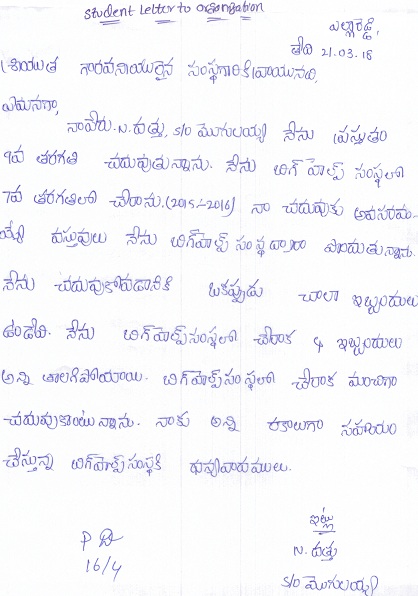 Student Letter to organisation
ఎల్లారెడ్డి,
తేది 21.03.18
శ్రీయుత గౌరవనీయులైన సంస్థగారికి వ్రాయునది,
ఏమనగా,
నాపేరు. N. దత్తు, S/o మొగులయ్య నేను ప్రస్తుతం
9వ తరగతి చదువుతున్నాను. నేను బిగ్ హెల్ప్ సంస్థలో
7వ తరగతిలో చేరాను. (2015-2016) నా చదువుకు అవసరమ-
య్యే వస్తువులు నేను బిగ్ హెల్ప్ సంస్థ ద్వారా పొందుతున్నాను.
నేను చదువుకోవడానికి ఒకప్పుడు చాలా ఇబ్బందులు
ఉండేవి. నేను బిగ్ హెల్ప్ సంస్థలో చేరాక ఈ ఇబ్బందులు
అన్ని తొలగిపోయాయి. బిగ్ హెల్ప్ సంస్థలో చేరాక మంచిగా
చదువుకుంటున్నాను. నాకు అన్ని రకాలుగా సహాయం
చేస్తున్న బిగ్ హెల్ప్ సంస్థకి ధన్యవాదములు.
ఇట్లు
N. దత్తు
S/o మొగులయ్య
16/4